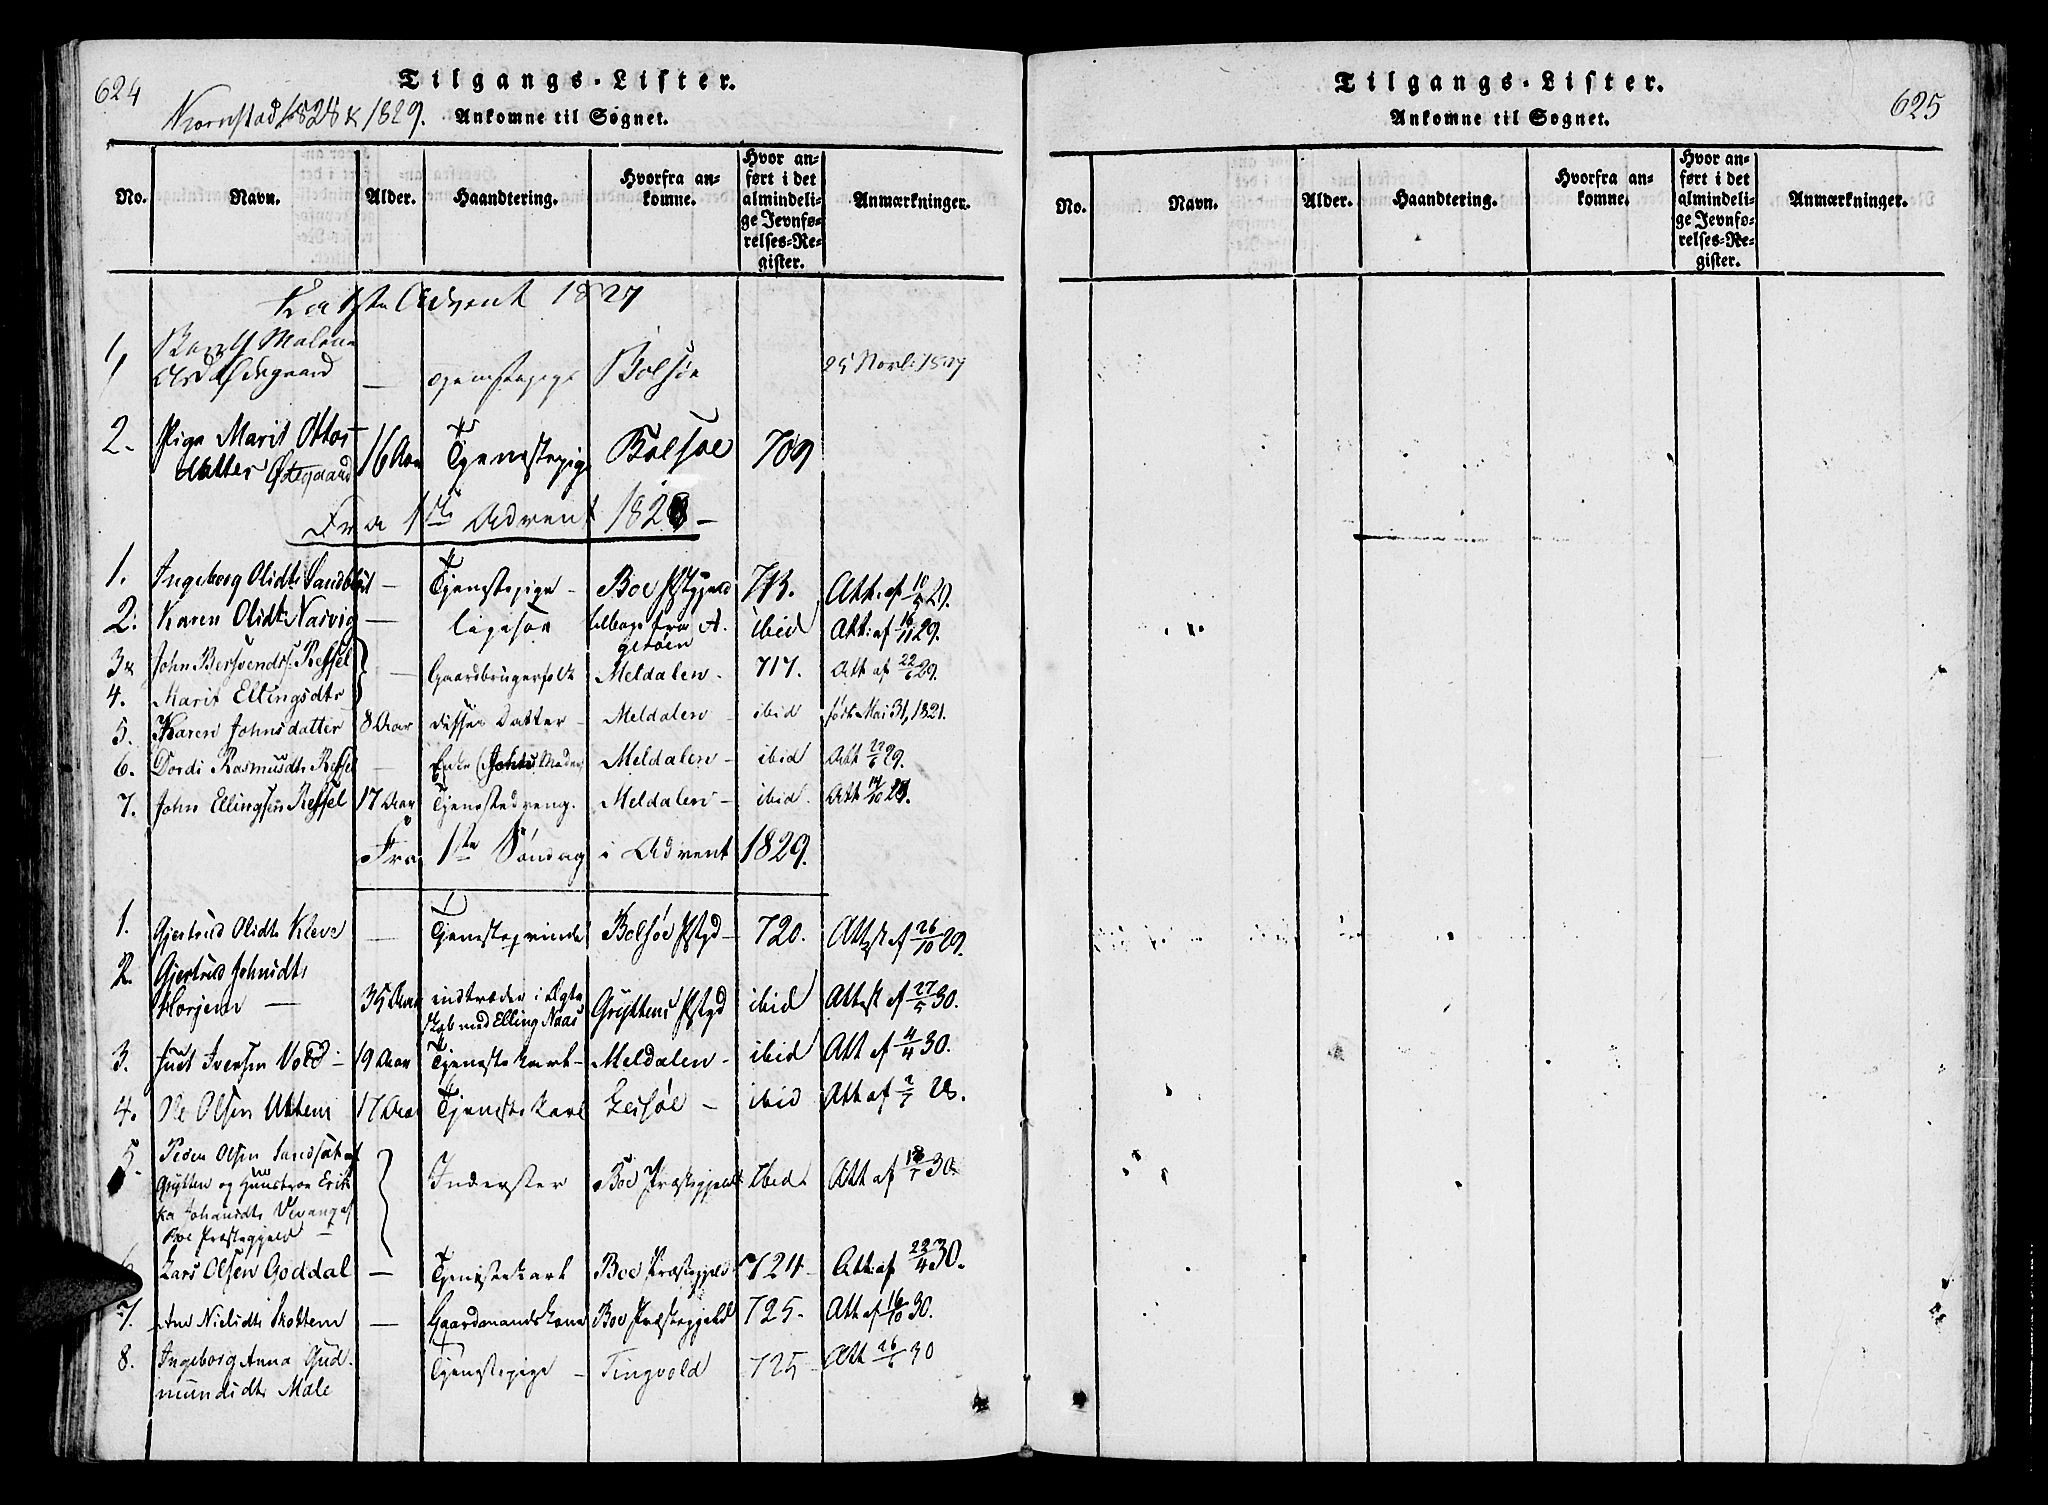 624
Tilgangs-Lister.
Kornstad 1828 & 1829. Ankomne til Sognet.
No. Navn. Alder. Haandtering. Hvorfra ankomne. Hvor anført i det almindelige Jevnførelses-Register. Anmærkninger.
Fra 1ste Advent 1827
1, Malene
Ødegaard — Tjenestepige Bolsøe 25 Novb: 1827
2. Pige Marit Ottos
datter Ødegaard 16 Aar Tjenestepige Bolsøe 709
Fra 1ste Advent 1828 —
1. Ingeborg Olsdtr Sandblst — Tjenestepige — Boe Pstgjeld 713. Att: af 10/5 29.
2. Karen Olsdtr Narvig — ligesom tilbage fra A- ibid Att: af 16/11 29.
gerøen
3. John Bersvends: Ressel — Gaardbrugerfolk Meldalen — 717. Att af 22/6 29.
4. Marit Ellingsdtr
5. Karen Johnsdatter 8 Aar disses Datter — Meldalen — ibid født Mai 31, 1821.
6. Dordi Rasmusdtr Ressel — Enke (Johns Moder) Meldalen — ibid Att 22/6 29.
7. John Ellingsen Ressel 17 Aar Tjenestedreng. Meldalen — ibid. Att 14/10 29.
Fra 1ste Søndag i Advent 1829.
1. Gjertrud Olsdtr Kleve — Tjenesteqvinde Bolsøe Pstgd — 720. Attest af 26/10 29.
2. Gjertrud Johnsdtr
Horjem — 35 Aar indtræder i Ægte- Gryttens Pstgd ibid Attest af 27/5 30.
skab med Elling Naas
3. Just Iversen Vold — 19 Aar Tjenestekarl — Meldalen — ibid Att af 4/4 30.
4. Ole Olsen Uttem 17 Aar Tjenestekarl Lessøe — ibid Att af 28.
5. Peder Olsen Sandsæt af
Grytten og Hustroe Erik- Inderster Boe Præstegjeld Ibid. Att af 30.
ka Johansdtr Vevang af
Boe Præstegjeld —
6. Lars Olsen Goddal — Tjenestekarl Boe Præstegjeld 724 Att: af 23/4 30.
7. Ane Nielsdtr Skottem — Gaardmandskone Boe Præstegjeld 725. Att af 16/10 30.
8. Ingeborg Anna Gud-
mundsdtr Male Tjenestepige — Tingvold 725 Att 26/6 30
Tilgangs-Lister.
625
Ankomne til Sognet.
No. Navn. Alder. Haandtering. Hvorfra ankomne. Hvor anført i det almindelige Jevnførelses-Register. Anmærkninger.